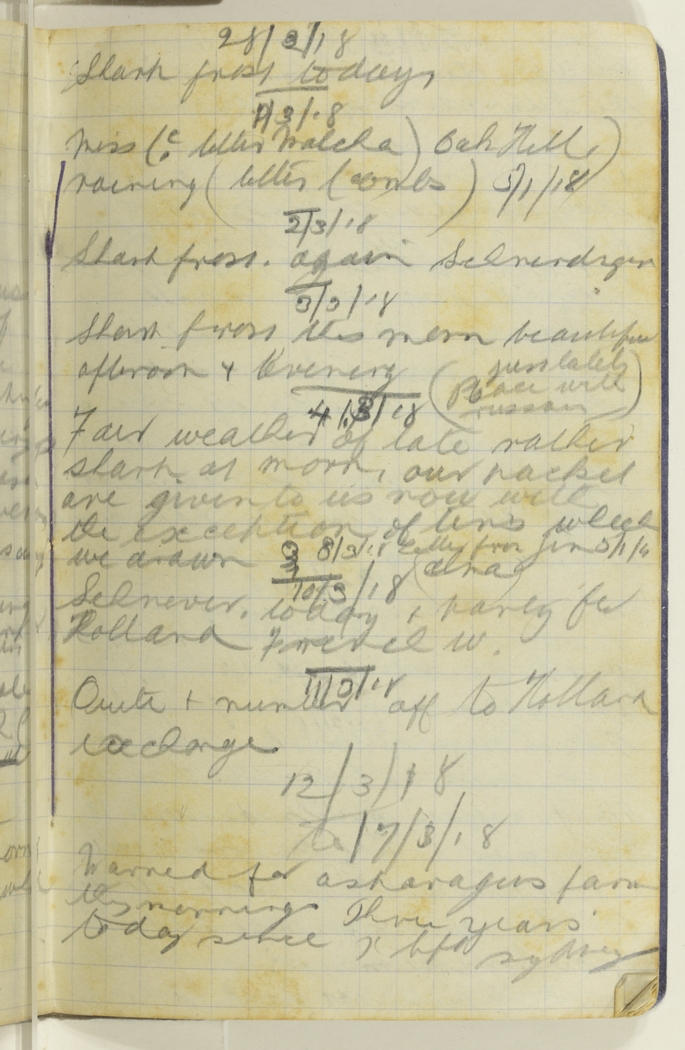 28/2/18
Shark frost todays
1/3/18
Miss (c. letter Walcha) Oak Hill)
raining (letter (combs) 5/1/18
2/3/18
Shark frost. again
3/3/18
Shark frost this morn beautiful
afternoon & Evening (
just lately
Peace with
russian)
4/3/18
Fair weather of late rather
shark at morn, our packet
are given to us now with
the exception of tins which
we drawn 8/3/18 letter from Jim 5/1/
10/3/18
today & party for
Holland W.
11/3/18
Quite & number off to Holland
exchange
12/3/18
to 17/3/18
Warned for asharagus farm
this mornings Three years
today since I left sydney